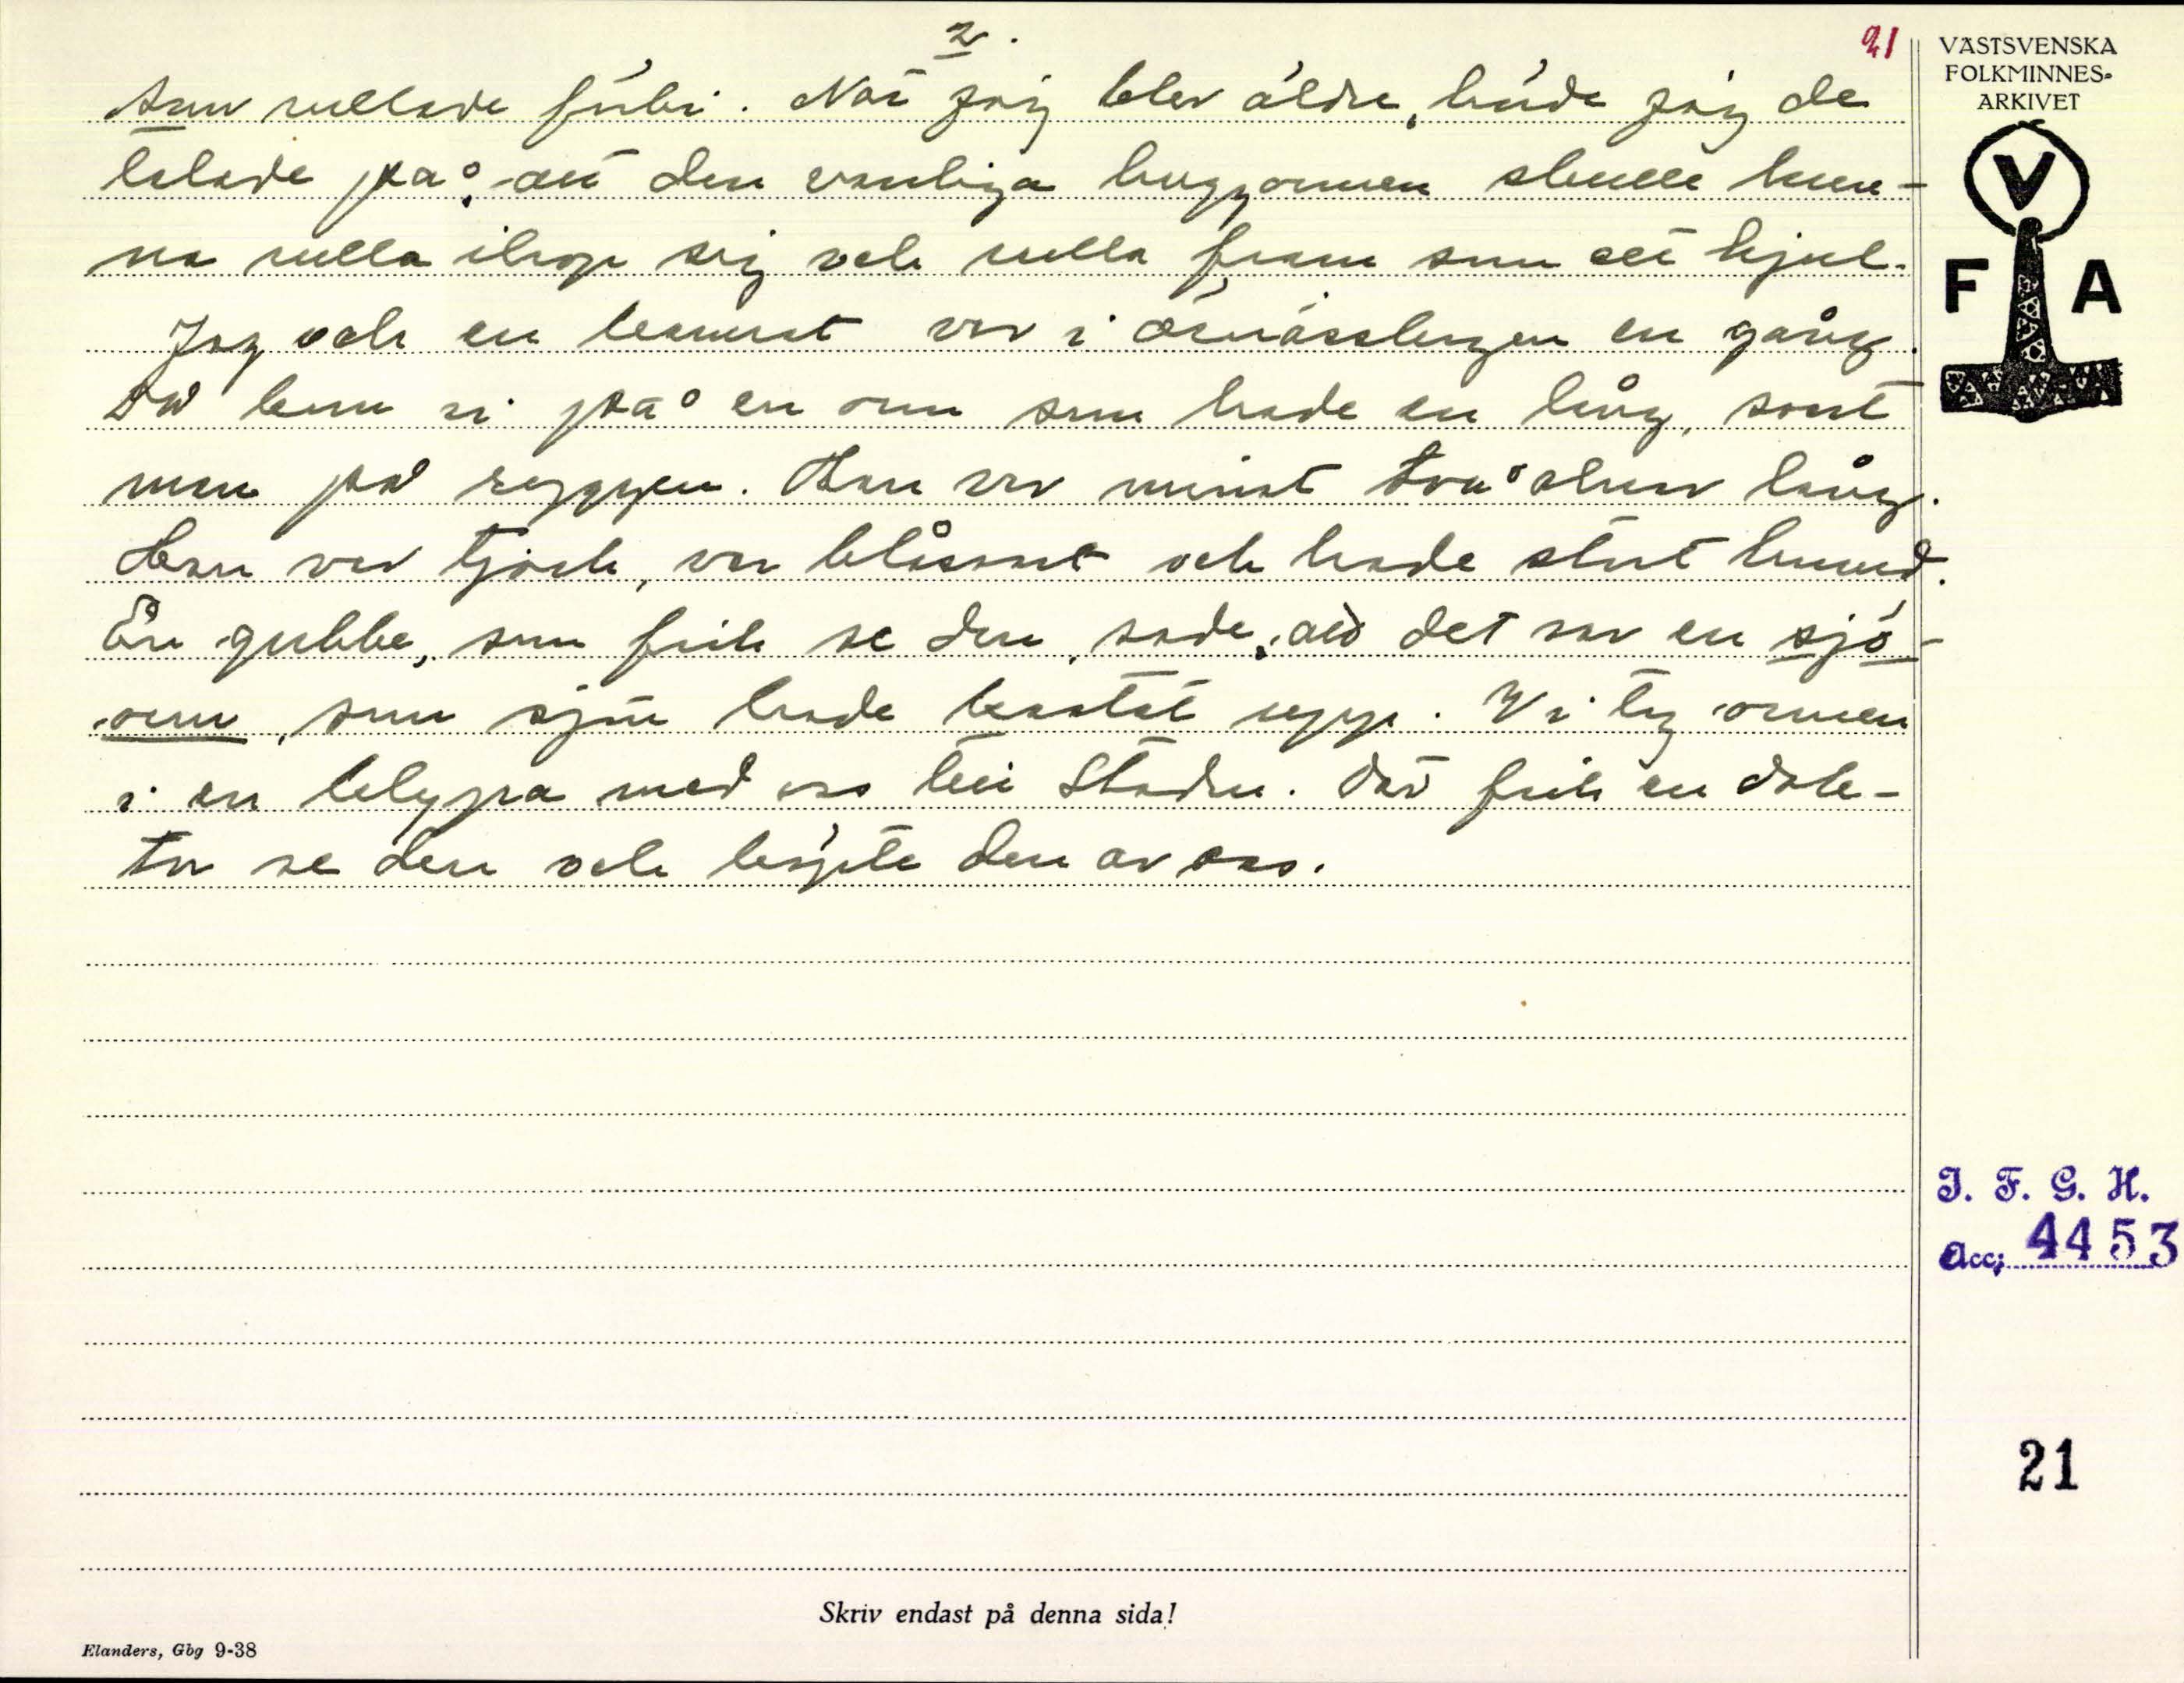 2.
21
rullade förbi. När jag blev äldre, hörde jag de
talade på, att den vanliga huggormen skulle kun-
na rulla ihop sig och rulla fram som ett hjul.
Jag och en kamrat var i en gång.
Då kom vi på en orm som hade en lång, svart
man på ryggen. Han var minst två alnar lång.
Han var tjock, var blåsvart och hade stort huvud.
En gubbe, som fick se den, sade, att det var en sjö-
orm, som sjön hade kastat upp. Vi tog ormen
i en klypa med oss till Staden. Där fick en dok-
tor se den och köpte den av oss.
VÄSTSVENSKA
FOLKMINNES-
ARKIVET
V
F A
I. F. G. H.
Acc. 4453
21
Skriv endast på denna sida!
Elanders, Gbg 9-38